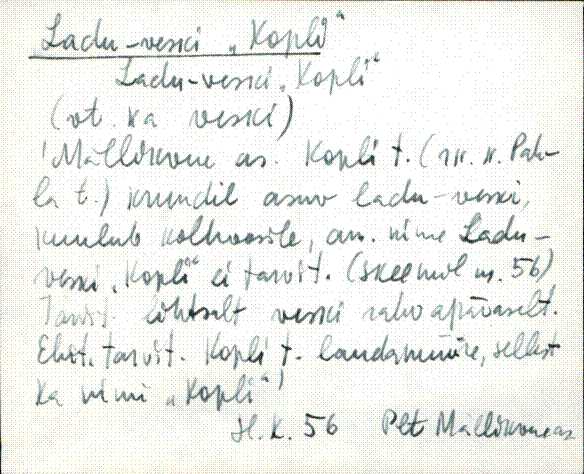 Ladu-veski „Kopli“
Ladu-veski „Kopli“
(vt. ka veski)
'Mällikvere as. Kopli t. (rk. n. Pah-
la t.) krundil asuv ladu-veski,
kuulub kolhoosile, am. nime Ladu-
veski „Kopli“ ei tarvit. (skeemil nr. 56)
Tarvit. lihtselt veski rahvapäraselt.
Ehit. tarvit. Kopli t. laudamüüre, sellest
ka nimi „Kopli“'
H.K. 56 Plt Mällikvere as